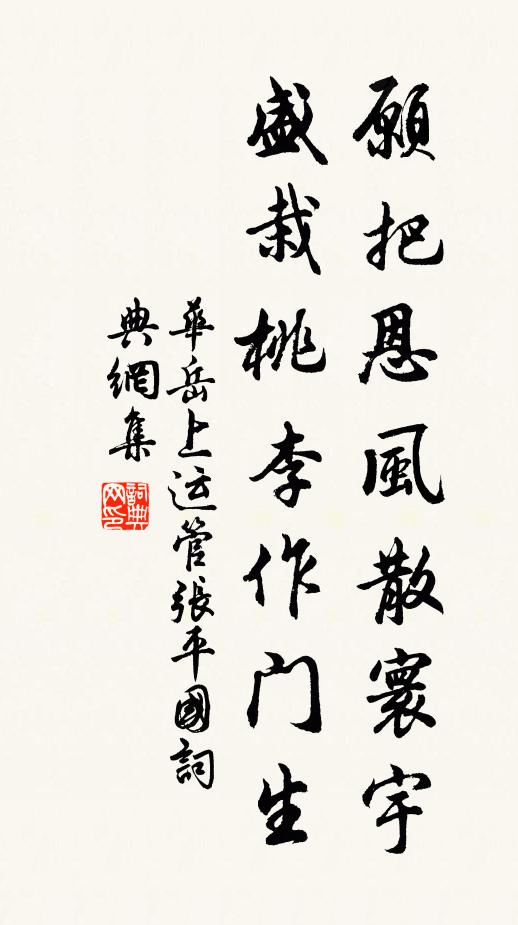 願把恩風散寰宇
盛栽桃李作門生
華岳上运管張平國詞
典網集
詞典
网印